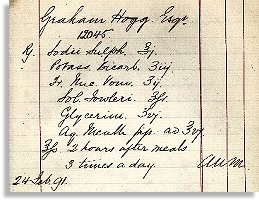 Graham Hogg Esqr.
12045
Rx. Sodii Sulph. ʒj.
Potass. Bicarb. ʒiij
Tr. Nuc. Vom. ʒij.
Sol. Fowleri. ʒfs.
Glycerini. ʒvj.
Aq. Menth. pip. ad ʒvj.
ʒfs 2 hours after meals
3 times a day.
24 Feb. 91.